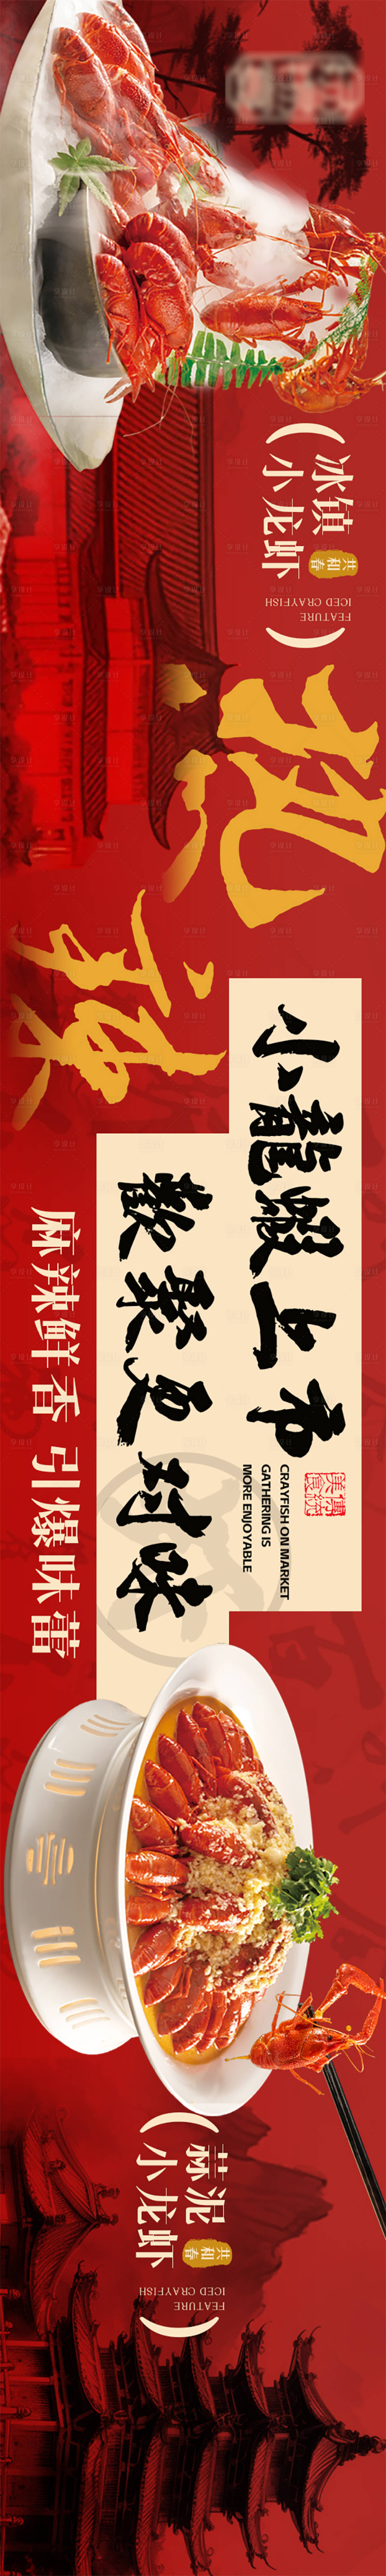 冰镇
小龙虾
共和春
FEATURE
ICED CRAYFISH
小龍蝦上市
歡聚更對味
CRAYFISH ON MARKET
GATHERING IS
MORE ENJOYABLE
麻辣鲜香 引爆味蕾
蒜泥
小龙虾
共和春
FEATURE
ICED CRAYFISH